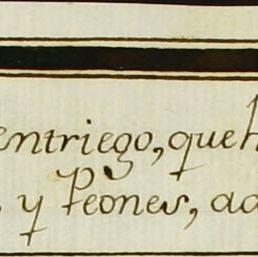 entriego, que h
y Peones, ad